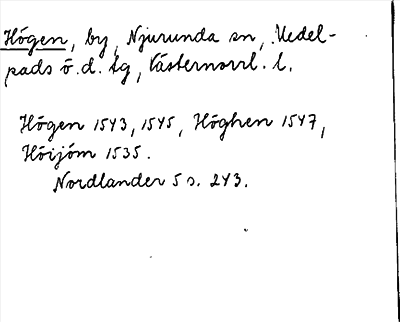 Högen, by, Njurunda sn, Medel-
pads ö. d. tg, Västernorrl. l.
Högen 1543, 1545, Höghen 1547,
Höijöm 1535.
Nordlander 5 s. 243.